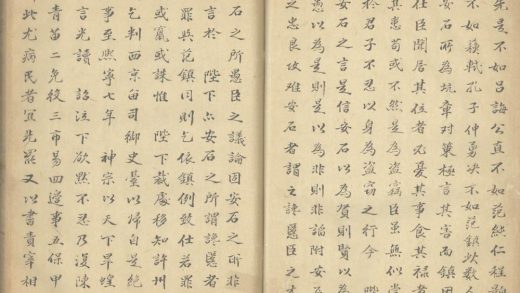 先見不如呂誨公直不如范純仁程
不如蘇軾孔子仲勇決不如范鎮以數人
安石所為抗章對策極言其害而鎮因
仕臣聞居其位者必憂其事食其祿者
其患苟或不然是為盜竊臣雖無似
於君子不忍以身為盜竊之行今
安石之言是信安石以為賢則賢以為
愚以為是則是以為非則非諂附安石
之忠良攻難安石者謂之讒慝臣之才
石之所愚臣之議論固安石之所非
言於 陛下六安石之所謂讒慝者
罪與范鎮同則乞依鎮例致仕若罪
或竄或誅惟 陛下裁處移知許州
乞判西京留司御史臺以歸自是絕
事至熙寧七年 神宗以天下旱蝗
言光讀 詔泣下欲默不忍乃復陳
青苗二免役三市易四邊事五保甲
此尤病民者宜先罷又以書責宰相